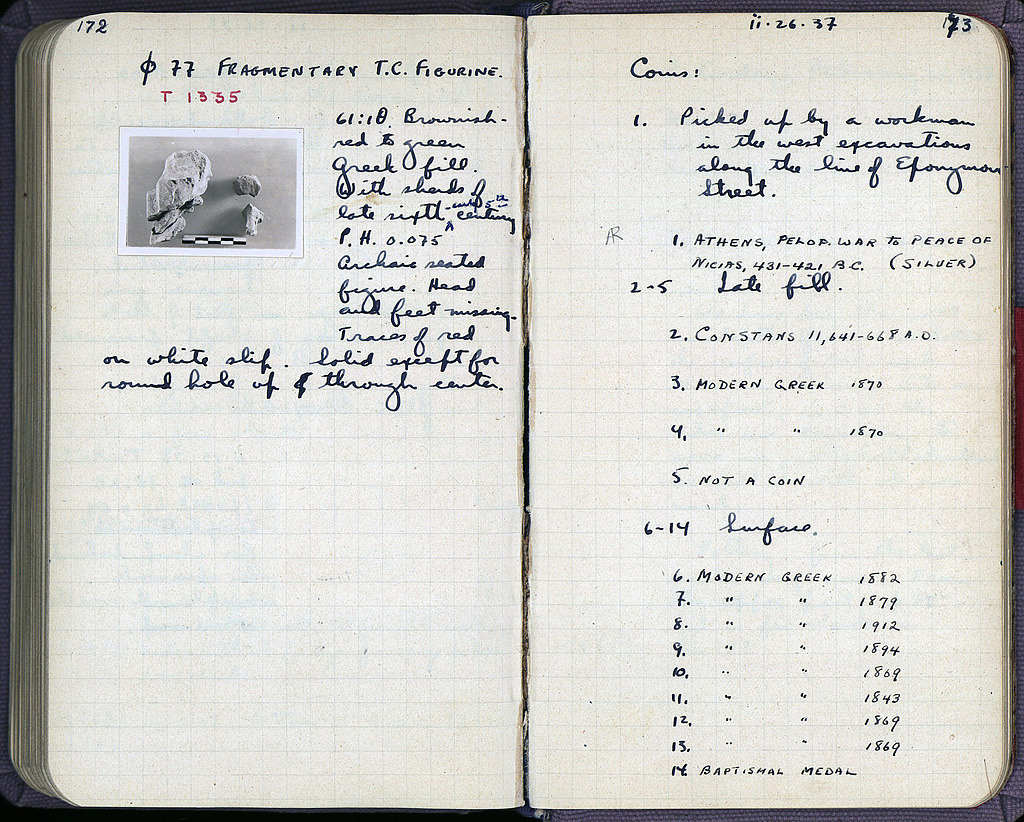 172
φ 77 FRAGMENTARY T.C. FIGURINE.
T 1335
61:ΙΘ. Brownish-
red to green
Greek fill.
With sherds of
late sixth - early 5th century
P. H. 0.075
Archaic seated
figure. Head
and feet missing.
Traces of red
on white slip. Solid except for
round hole up through center.
ii·26·37
173
Coins:
1. Picked up by a workman
in the west excavations
along the line of Eponymon
Street.
AR
1. ATHENS, PELOP. WAR TO PEACE OF
NICIAS, 431-421 B.C. (SILVER)
2-5 Late fill.
2. CONSTANS II, 641-668 A.D.
3. MODERN GREEK 1870
4. " " 1870
5. NOT A COIN
6-14 Surface.
6. MODERN GREEK 1882
7. " " 1879
8. " " 1912
9. " " 1894
10. " " 1869
11. " " 1843
12. " " 1869
13. " " 1869
14. BAPTISMAL MEDAL